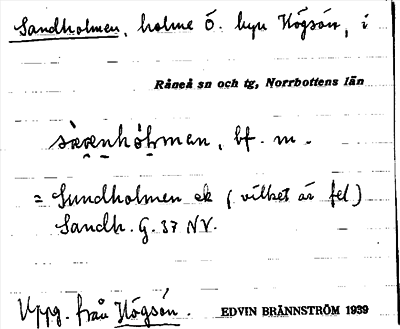 Sandholmen, holme ö. byn Högsön, i
Råneå sn och tg, Norrbottens län
bf. m.
= Sundholmen ek (vilket är fel)
Sandh. G. 37 NV.
Uppg. från Högsön. EDVIN BRÄNNSTRÖM 1939